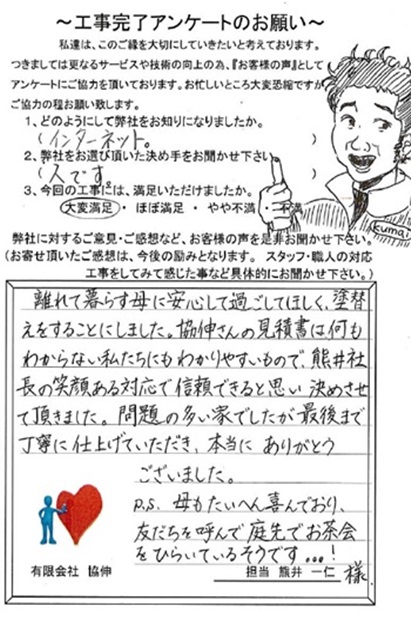 ～工事完了アンケートのお願い～
私達は、このご縁を大切にしていきたいと考えております。
つきましては更なるサービスや技術の向上の為、『お客様の声』として
アンケートにご協力を頂いております。お忙しいところ大変恐縮ですが
ご協力の程お願い致します。
1、どのようにして弊社をお知りになりましたか。
(インターネット。)
2、弊社をお選び頂いた決め手をお聞かせ下さい
(人です。)
3、今回の工事には、満足いただけましたか。
大変満足・ほぼ満足・やや不満・不満
kumai
弊社に対するご意見・ご感想など、お客様の声を是非お聞かせ下さい。
(お寄せ頂いたご感想は、今後の励みとなります。スタッフ・職人の対応
工事をしてみて感じた事など具体的にお聞かせ下さい。)
離れて暮らす母に安心して過ごしてほしく、塗替
えをすることにしました。協伸さんの見積書は何も
わからない私たちにもわかりやすいもので、熊井社
長の笑顔ある対応で信頼できると思い決めさせ
て頂きました。問題の多い家でしたが最後まで
丁寧に仕上げていただき、本当にありがとう
ございました。
P.S. 母もたいへん喜んでおり、
友だちを呼んで庭先でお茶会
をひらいているそうです…!
有限会社 協伸
担当 熊井 一仁 様